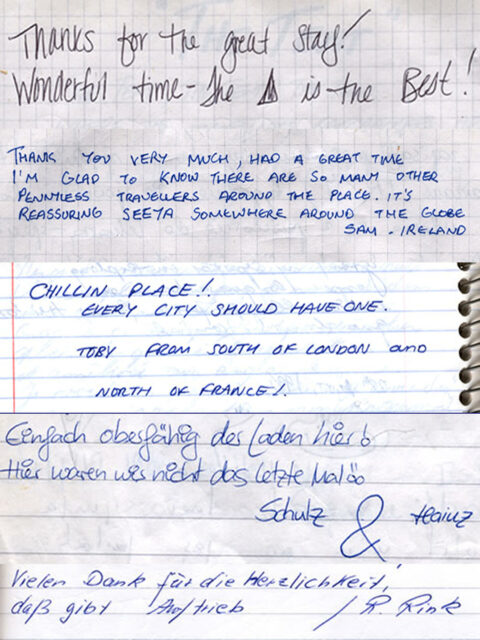 Thanks for the great stay!
Wonderful time - the is the Best!
THANK YOU VERY MUCH, HAD A GREAT TIME
I'M GLAD TO KNOW THERE ARE SO MANY OTHER
PENNILESS TRAVELLERS AROUND THE PLACE. IT'S
REASSURING SEEYA SOMEWHERE AROUND THE GLOBE
SAM - IRELAND
CHILLIN PLACE!!
EVERY CITY SHOULD HAVE ONE.
TOBY FROM SOUTH OF LONDON and
NORTH OF FRANCE!
Einfach obergähig der Laden hier
Hier waren wir nicht das letzte Mal
Schulz & Hainz
Vielen Dank für die Herzlichkeit,
daß gibt Auftrieb / R. Rink